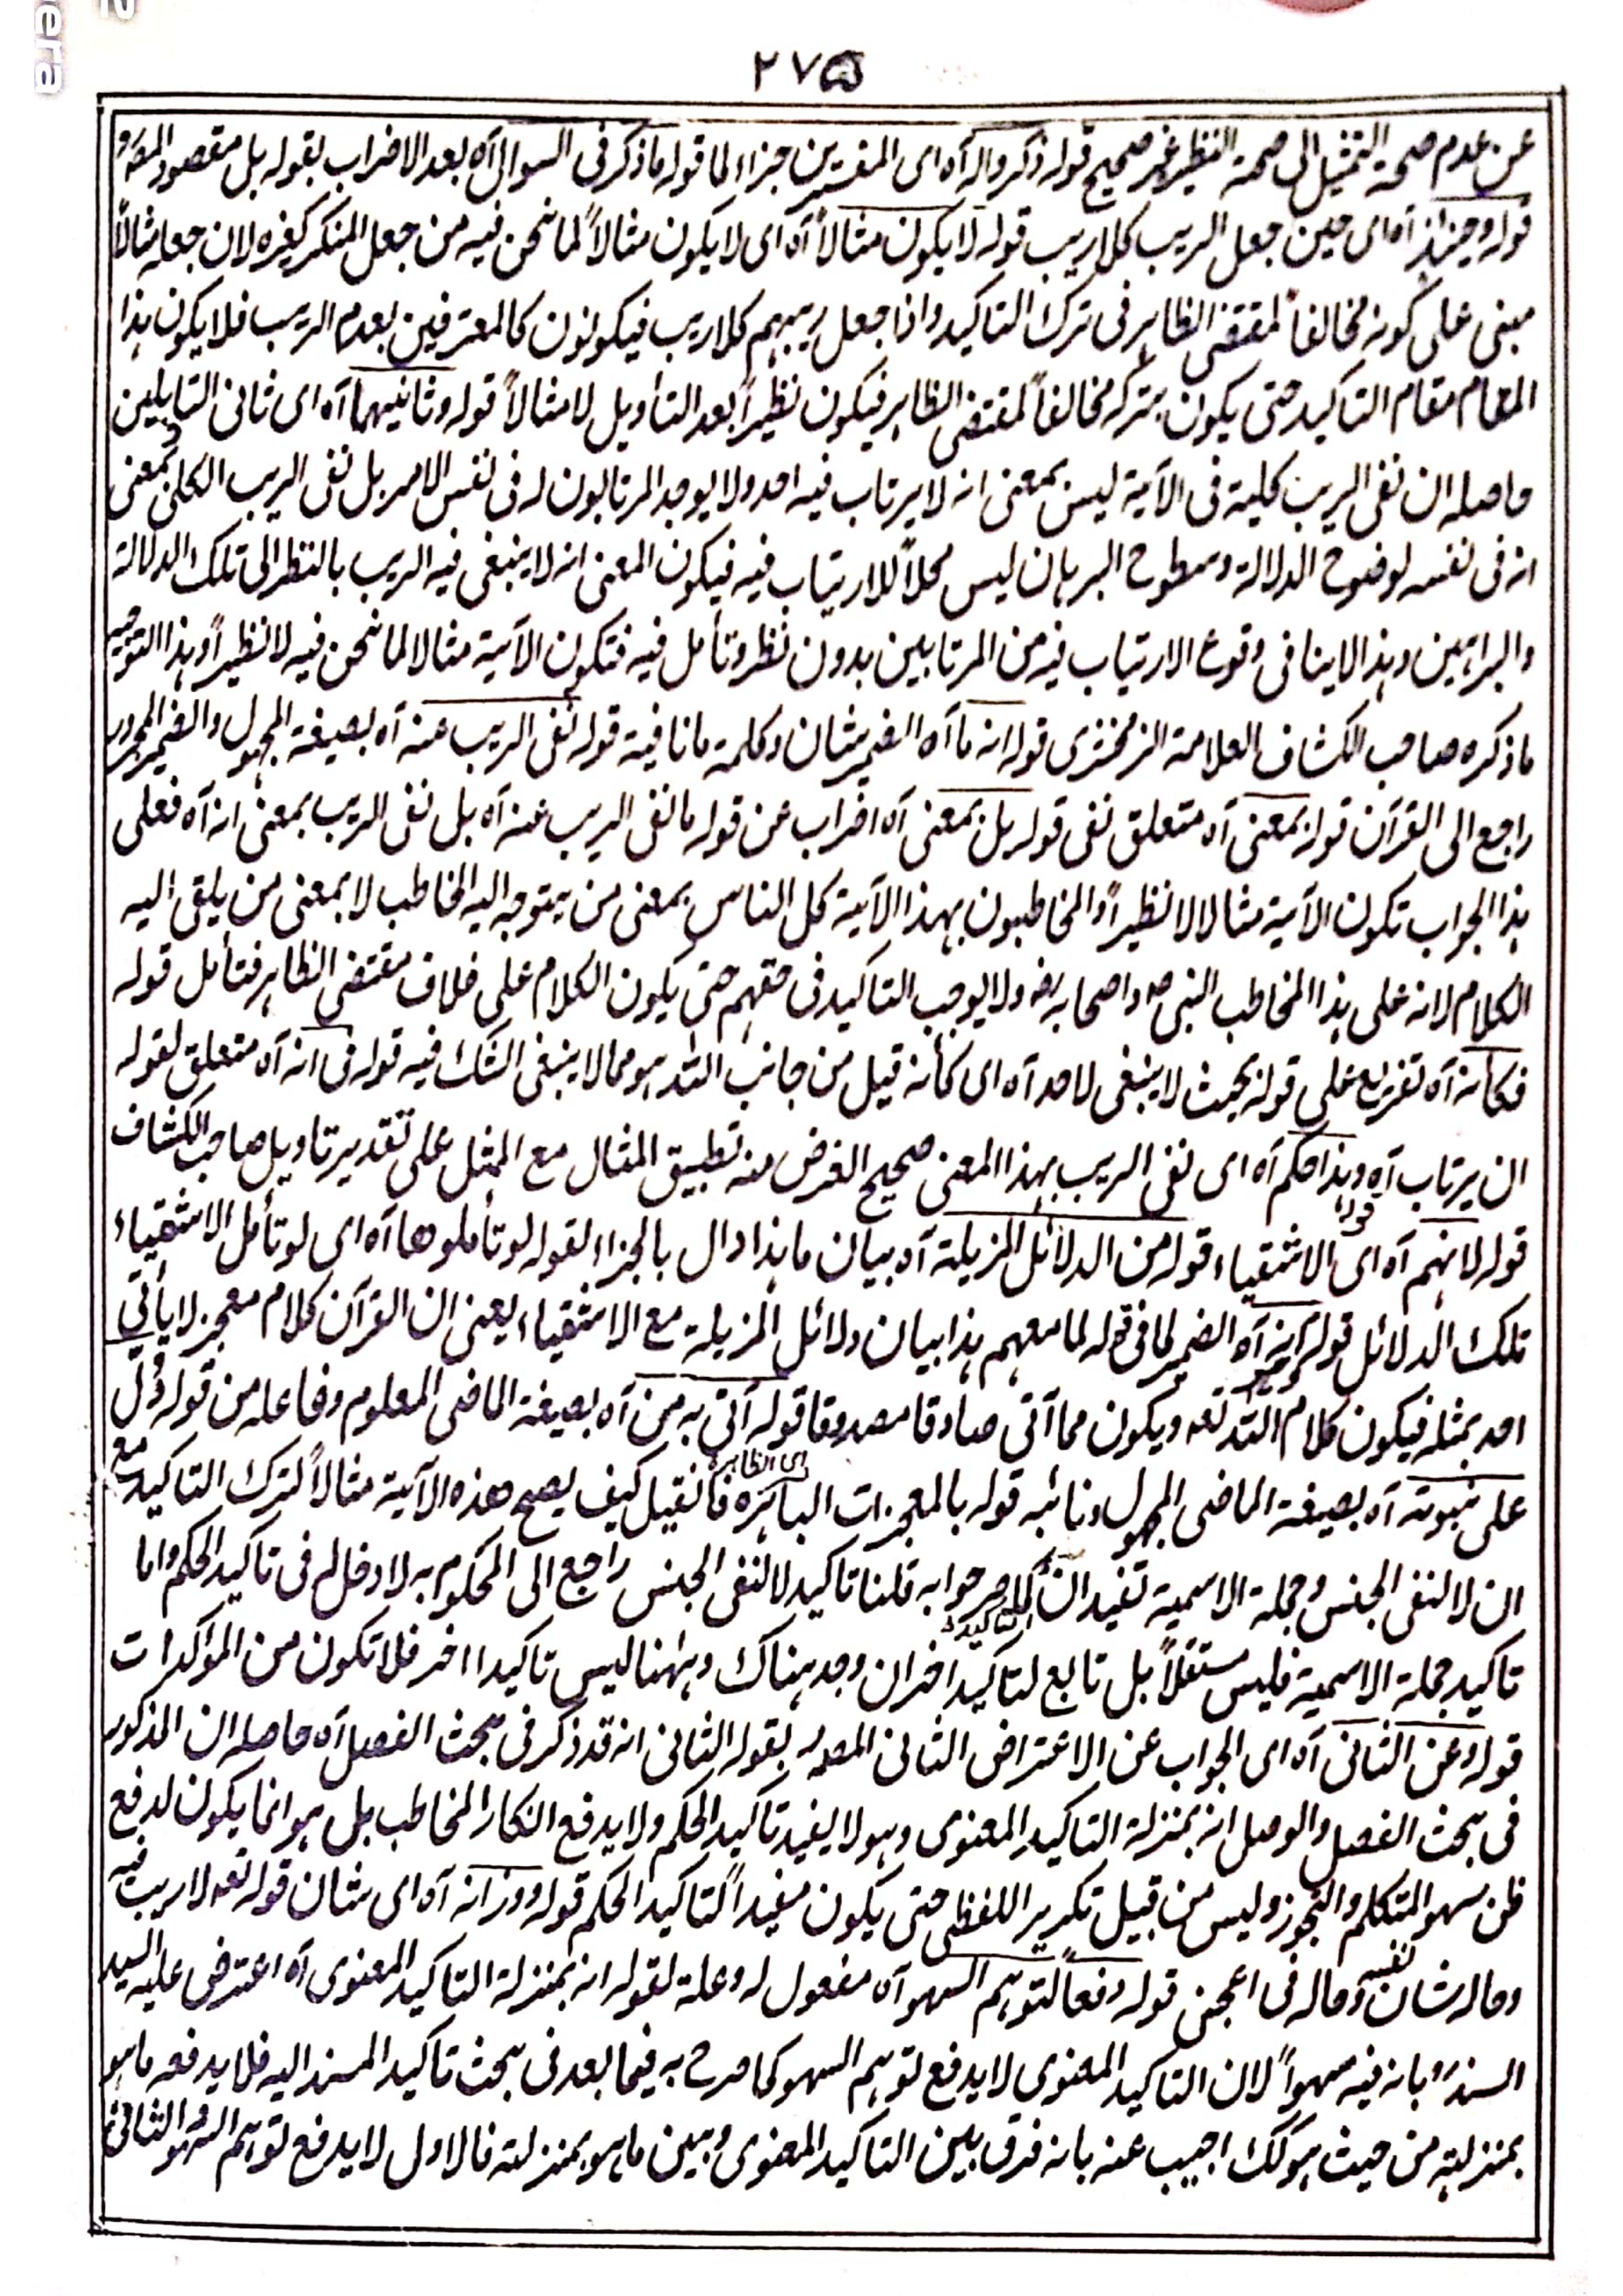 ٢٧٥
عن عدم صحة التمثيل الى صحة النظير غير صحيح قوله ذكروا له آه اى المفسرين جزاء لما قوله ما ذكر فى السوال آه بعد الاضراب بقوله بل مقصود المصه
قوله وحينئذ آه اى حين جعل الريب كلا ريب قوله لا يكون مثالاً آه اى لا يكون مثالاً لما نحن فيه من جعل المنكر كغيره لان جعله مثالاً
مبنى على كونه مخالفاً لمقتضى الظاهر فى ترك التاكيد واذا جعل ريبهم كلا ريب فيكونون كالمعترفين بعدم الريب فلا يكون هذا
المقام مقام التاكيد حتى يكون بتركه مخالفاً لمقتضى الظاهر فيكون نظيراً بعد التأويل لا مثالاً قوله وثانيهما آه اى ثانى التاويلين
حاصله ان نفى الريب كلية فى الآية ليس بمعنى انه لا يرتاب فيه احد ولا يوجد المرتابون له فى نفس الامر بل نفى الريب الكلى بمعنى
انه فى نفسه لوضوح الدلالة وسطوح البرهان ليس محلاً للارتياب فيه فيكون المعنى انه لا ينبغى فيه الريب بالنظر الى تلك الدلالة
والبراهين وهذا لا ينافى وقوع الارتياب فيه من المرتابين بدون نظر وتأمل فيه فتكون الآية مثالا لما نحن فيه لا نظيراً وهذا التوجيه
ما ذكره صاحب الكشاف العلامة الزمخشرى قوله انه ما آه الضمير شان وكلمة ما نافية قوله نفى الريب عنه آه بصيغة المجهول والضمير المجرور
راجع الى القرآن قوله بمعنى آه متعلق نفى قوله بل بمعنى آه اضراب عن قوله ما نفى الريب عنه آه بل نفى الريب بمعنى انه آه فعلى
هذا الجواب تكون الآية مثالا لا نظيراً والمخاطبون بهذا الآية كل الناس بمعنى من يتوجه اليه الخاطب لا بمعنى من يلقى اليه
الكلام لانه على هذا المخاطب النبى صه واصحابه رضه ولا يوجب التاكيد فى حقهم حتى يكون الكلام على خلاف مقتضى الظاهر فتأمل قوله
فكأنه آه تفريع على قوله بحيث لا ينبغى لاحد آه اى كأنه قيل من جانب الله هو مما لا ينبغى الشك فيه قوله فى انه آه متعلق لقوله
ان يرتاب آه قوله وهذا حكم آه اى نفى الريب بهذا المعنى صحيح الغرض منه تطبيق المثال مع الممثل على تقدير تاويل صاحب الكشاف
قوله لانهم آه اى الاشقياء قوله من الدلائل المزيلة آه بيان ما هذا دال بالجزاء لقوله لو تأملوها آه اى لو تأمل الاشقياء
تلك الدلائل قوله انه آه الضمير لما فى قوله لما معهم هذا بيان دلائل المزيلة مع الاشقياء يعنى ان القرآن كلام معجز لا يأتى
احد بمثله فيكون كلام الله تعه ويكون مما آتى صادقا مصدوقا قوله آتى به من آه بصيغة الماضى المعلوم وفاعله من قوله دُلّ
على نبوته آه بصيغة الماضى المجهول ونائبه قوله بالمعجزات الباهرة اى الظاهرة فانقيل كيف يصح هذه الآية مثالاً لترك التاكيد مع
ان لا لنفى الجنس وجملة الاسمية تفيدان التاكيد كما مر جوابه قلنا تاكيد لا لنفى الجنس راجع الى المحكوم به لا دخل له فى تاكيد الحكم واما
تاكيد جملة الاسمية فليس مستقلاً بل تابع لتاكيد اخر ان وجد هناك وههنا ليس تاكيدا اخر فلا تكون من المؤكدات
قوله وعن الثانى آه اى الجواب عن الاعتراض الثانى المصدر بقوله الثانى انه قد ذكر فى بحث الفصل آه حاصله ان المذكور
فى بحث الفصل والوصل انه بمنزلة التاكيد المعنوى وهو لا يفيد تاكيد الحكم ولا يدفع انكار المخاطب بل هو انما يكون لدفع
ظن سهو المتكلم والتجوز وليس من قبيل تكرير اللفظى حتى يكون مفيداً لتاكيد الحكم قوله ووزانه آه اى شان قوله تعه لا ريب فيه
وحاله شان نفسه وحاله فى اعجبنى قوله دفعاً لتوهم السهو آه مفعول له وعلة لقوله انه بمنزلة التاكيد المعنوى آه اعترض عليه السيد
السندرَه بانه فيه سهواً لان التاكيد المعنوى لا يدفع توهم السهو كما صرح به فيما بعد فى بحث تاكيد المسند اليه فلا يدفعه ما هو
بمنزلته من حيث هو كك اجيب عنه بانه فرق بين التاكيد المعنوى وبين ما هو بمنزلته فالاول لا يدفع توهم السهو والثانى